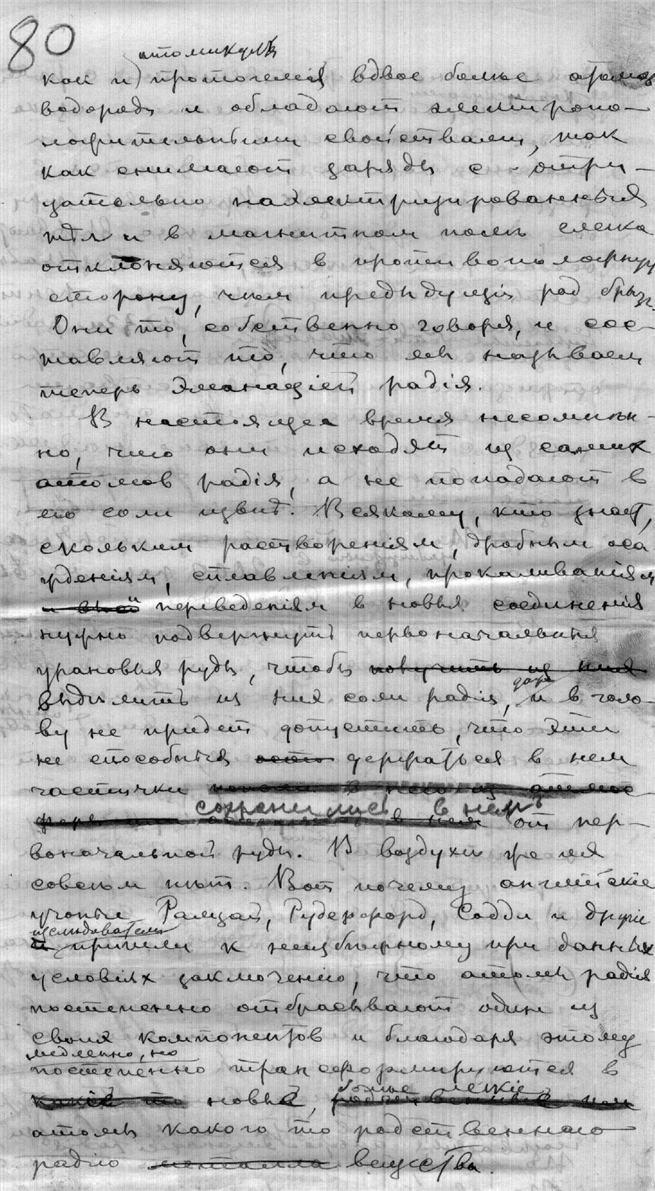 80
атомикулы
кои и) протогелія вдвое больше атомов
водорода и обладают электропо-
ложительными свойствами, так
как снимают заряды с отри-
цательно наэлектризированных
тѣл и в магнитном полѣ слегка
отклоняются в противоположную
сторону, чѣм предыдущій род брызг.
Они то, собственно говоря, и сос-
тавляют то, что мы называем
теперь Эманаціей радія.
В настоящее время несомнѣн-
но, что они исходят из самих
атомов радія, а не попадают в
его соли извнѣ. Всякому, кто знает,
скольким раствореніям, дробным оса
жденіям, сплавленіям, прокаливаніям
переведеніям в новыя соединенія
нужно подвергнуть первоначальныя
урановыя руды, чтобы получить из них
выдѣлить из них соли радія, даже и в голо-
ву не придет допустить, что эти
не способныя держаться в нем
частички
сохранились в нем от пер-
воначальной руды. В воздухѣ же их
совсѣм нѣт. Вот почему англійскіе
ученые Рамзай, Рудерфорд, Содди и другіе
изслѣдователи
пришли к неизбѣжному при данных
условіях заключенію, что атомы радія
постепенно отбрасывают один из
своих компонентов и благодаря этому
медленно, но
постепенно трансформируются в
какіе то новые, болѣе легкіе
атомы какого то родственнаго
радію металла вещества.